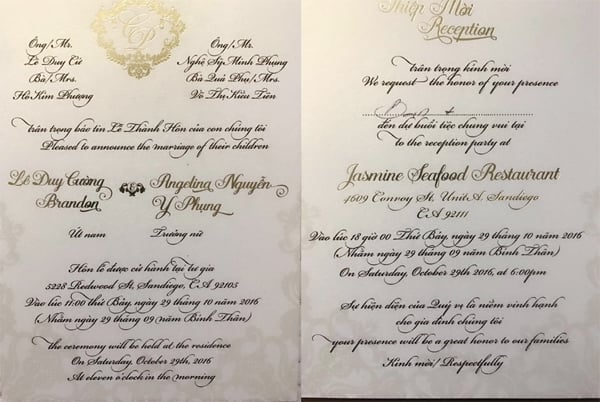 CP
Ông/Mr.
Lê Duy Cừ
Bà/Mrs.
Hồ Kim Phượng
Ông/Mr.
Nghệ Sỹ Minh Phụng
Bà Quả Phụ/Mrs.
Võ Thị Kiều Tiên
trân trọng báo tin Lễ Thành Hôn của con chúng tôi
Pleased to announce the marriage of their children
Lê Duy Cường
Brandon
&
Angelina Nguyễn
Y Phụng
Út nam
Trưởng nữ
Hôn lễ được cử hành tại tư gia
5228 Redwood St. Sandiego, CA 92105
Vào lúc 11:00 thứ Bảy, ngày 29 tháng 10 năm 2016
(Nhằm ngày 29 tháng 09 năm Bính Thân)
the ceremony will be held at the residence
On Saturday, October 29th, 2016
At eleven o'clock in the morning
Thiệp Mời
Reception
trân trọng kính mời
We request the honor of your presence
đến dự buổi tiệc chung vui tại
to the reception party at
Jasmine Seafood Restaurant
4609 Convoy St. Unit A. Sandiego
CA 92111
Vào lúc 18 giờ 00 Thứ Bảy, ngày 29 tháng 10 năm 2016
(Nhằm ngày 29 tháng 09 năm Bính Thân)
On Saturday, October 29th, 2016, at 6:00pm
Sự hiện diện của Quý vị là niềm vinh hạnh
cho gia đình chúng tôi
your presence will be a great honor to our families
Kính mời/Respectfully